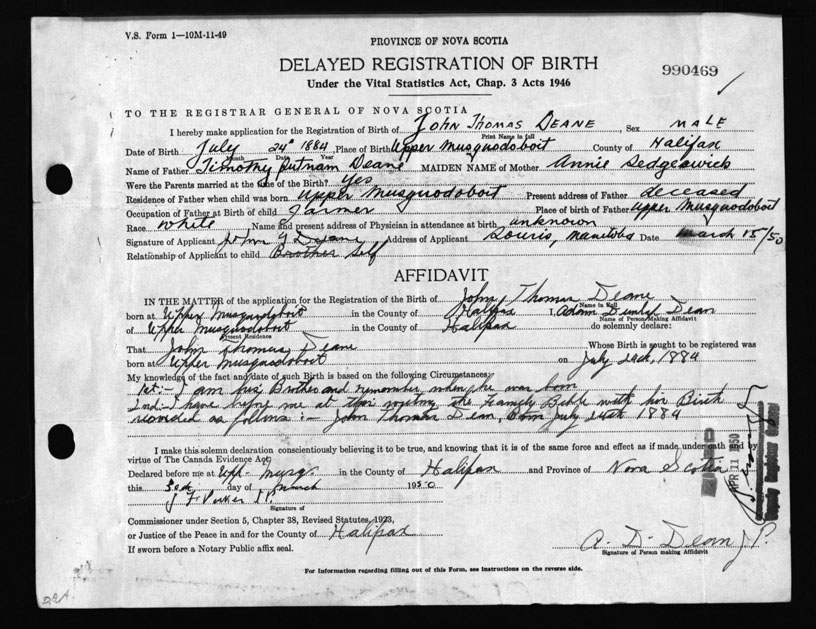 V.S. Form 1—10M-11-49
PROVINCE OF NOVA SCOTIA
DELAYED REGISTRATION OF BIRTH
990469
Under the Vital Statistics Act, Chap. 3 Acts 1946
TO THE REGISTRAR GENERAL OF NOVA SCOTIA
I hereby make application for the Registration of Birth of John Thomas Deane, Sex MALE
Print Name in full
Date of Birth July 24th 1884 Place of Birth Upper Musquodoboit County of Halifax
Month Date Year
Name of Father Timothy Putnam Deane MAIDEN NAME of Mother Annie Sedgewick
Were the Parents married at the time of the Birth? Yes
Residence of Father when child was born Upper Musquodoboit Present address of Father deceased
Occupation of Father at Birth of child Farmer Place of birth of Father Upper Musquodoboit
Race White Name and present address of Physician in attendance at birth unknown
Signature of Applicant John T Deane Address of Applicant Souris, Manitoba Date March 15/50
Relationship of Applicant to child Brother Self
AFFIDAVIT
IN THE MATTER of the application for the Registration of the Birth of John Thomas Deane
Name in full
born at Upper Musquodoboit in the County of Halifax I, Adam Dunlap Dean
Name of Person Making Affidavit
of Upper Musquodoboit in the County of Halifax do solemnly declare:
Present Residence
That John Thomas Deane Whose Birth is sought to be registered was
born at Upper Musquodoboit on July 24th, 1884
My knowledge of the fact and date of such Birth is based on the following Circumstances:
1st:- I am his Brother and remember when he was born
2nd:- I have before me at this writing the Family Bible with his Birth
recorded as follows:- John Thomas Dean, Born July 24th 1884
I make this solemn declaration conscientiously believing it to be true, and knowing that it is of the same force and effect as if made under oath and by
virtue of The Canada Evidence Act.
Declared before me at Upp. Musq. in the County of Halifax and Province of Nova Scotia
this 3rd day of March 1950
J F Parker J.P.
Signature of
Commissioner under Section 5, Chapter 38, Revised Statutes, 1923,
or Justice of the Peace in and for the County of Halifax
If sworn before a Notary Public affix seal.
A. D. Dean J.P.
Signature of Person making Affidavit
For Information regarding filling out of this Form, see instructions on the reverse side.
APR 11 1950